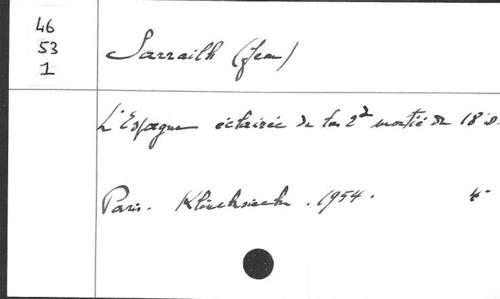 46
53
1
Sarrailh (Jean)
L'Espagne éclairée de la 2e moitié du 18e s.
Paris. Klincksieck. 1954. 4°